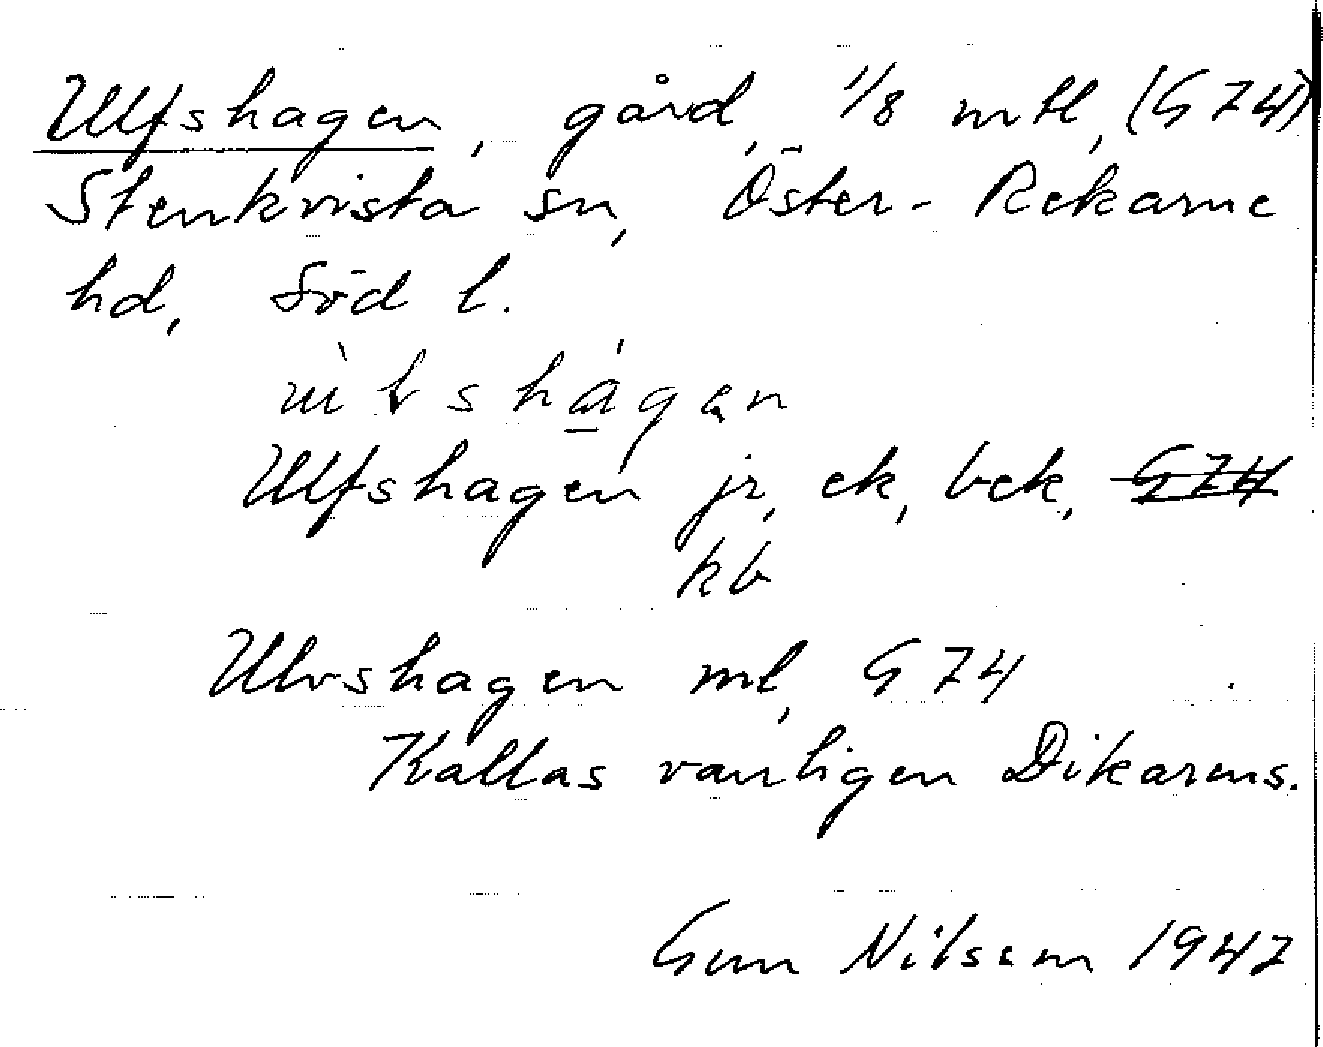 Ulfshagen, gård, 1/8 mtl, (G 74)
Stenkvista sn, Öster-Rekarne
hd, Söd l.
Ulfshagen jr, ek, bek, G74
kb
Ulvshagen ml, G 74
Kallas vanligen Dikarens.
Gun Nilsson 1947